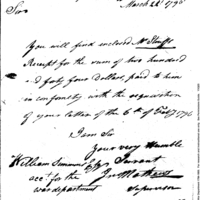 March 22d 1796
Sir
You will find enclosed Mr
Receipt for the sum of two hundred
and forty four Dollars, paid to him
in conformity with the requisition
of your letter of the 6th of Feby 1796
I am Sir
your very Humble
William Simmons Esqr Servant
acct for the Jno Mathews
war department Supervisor